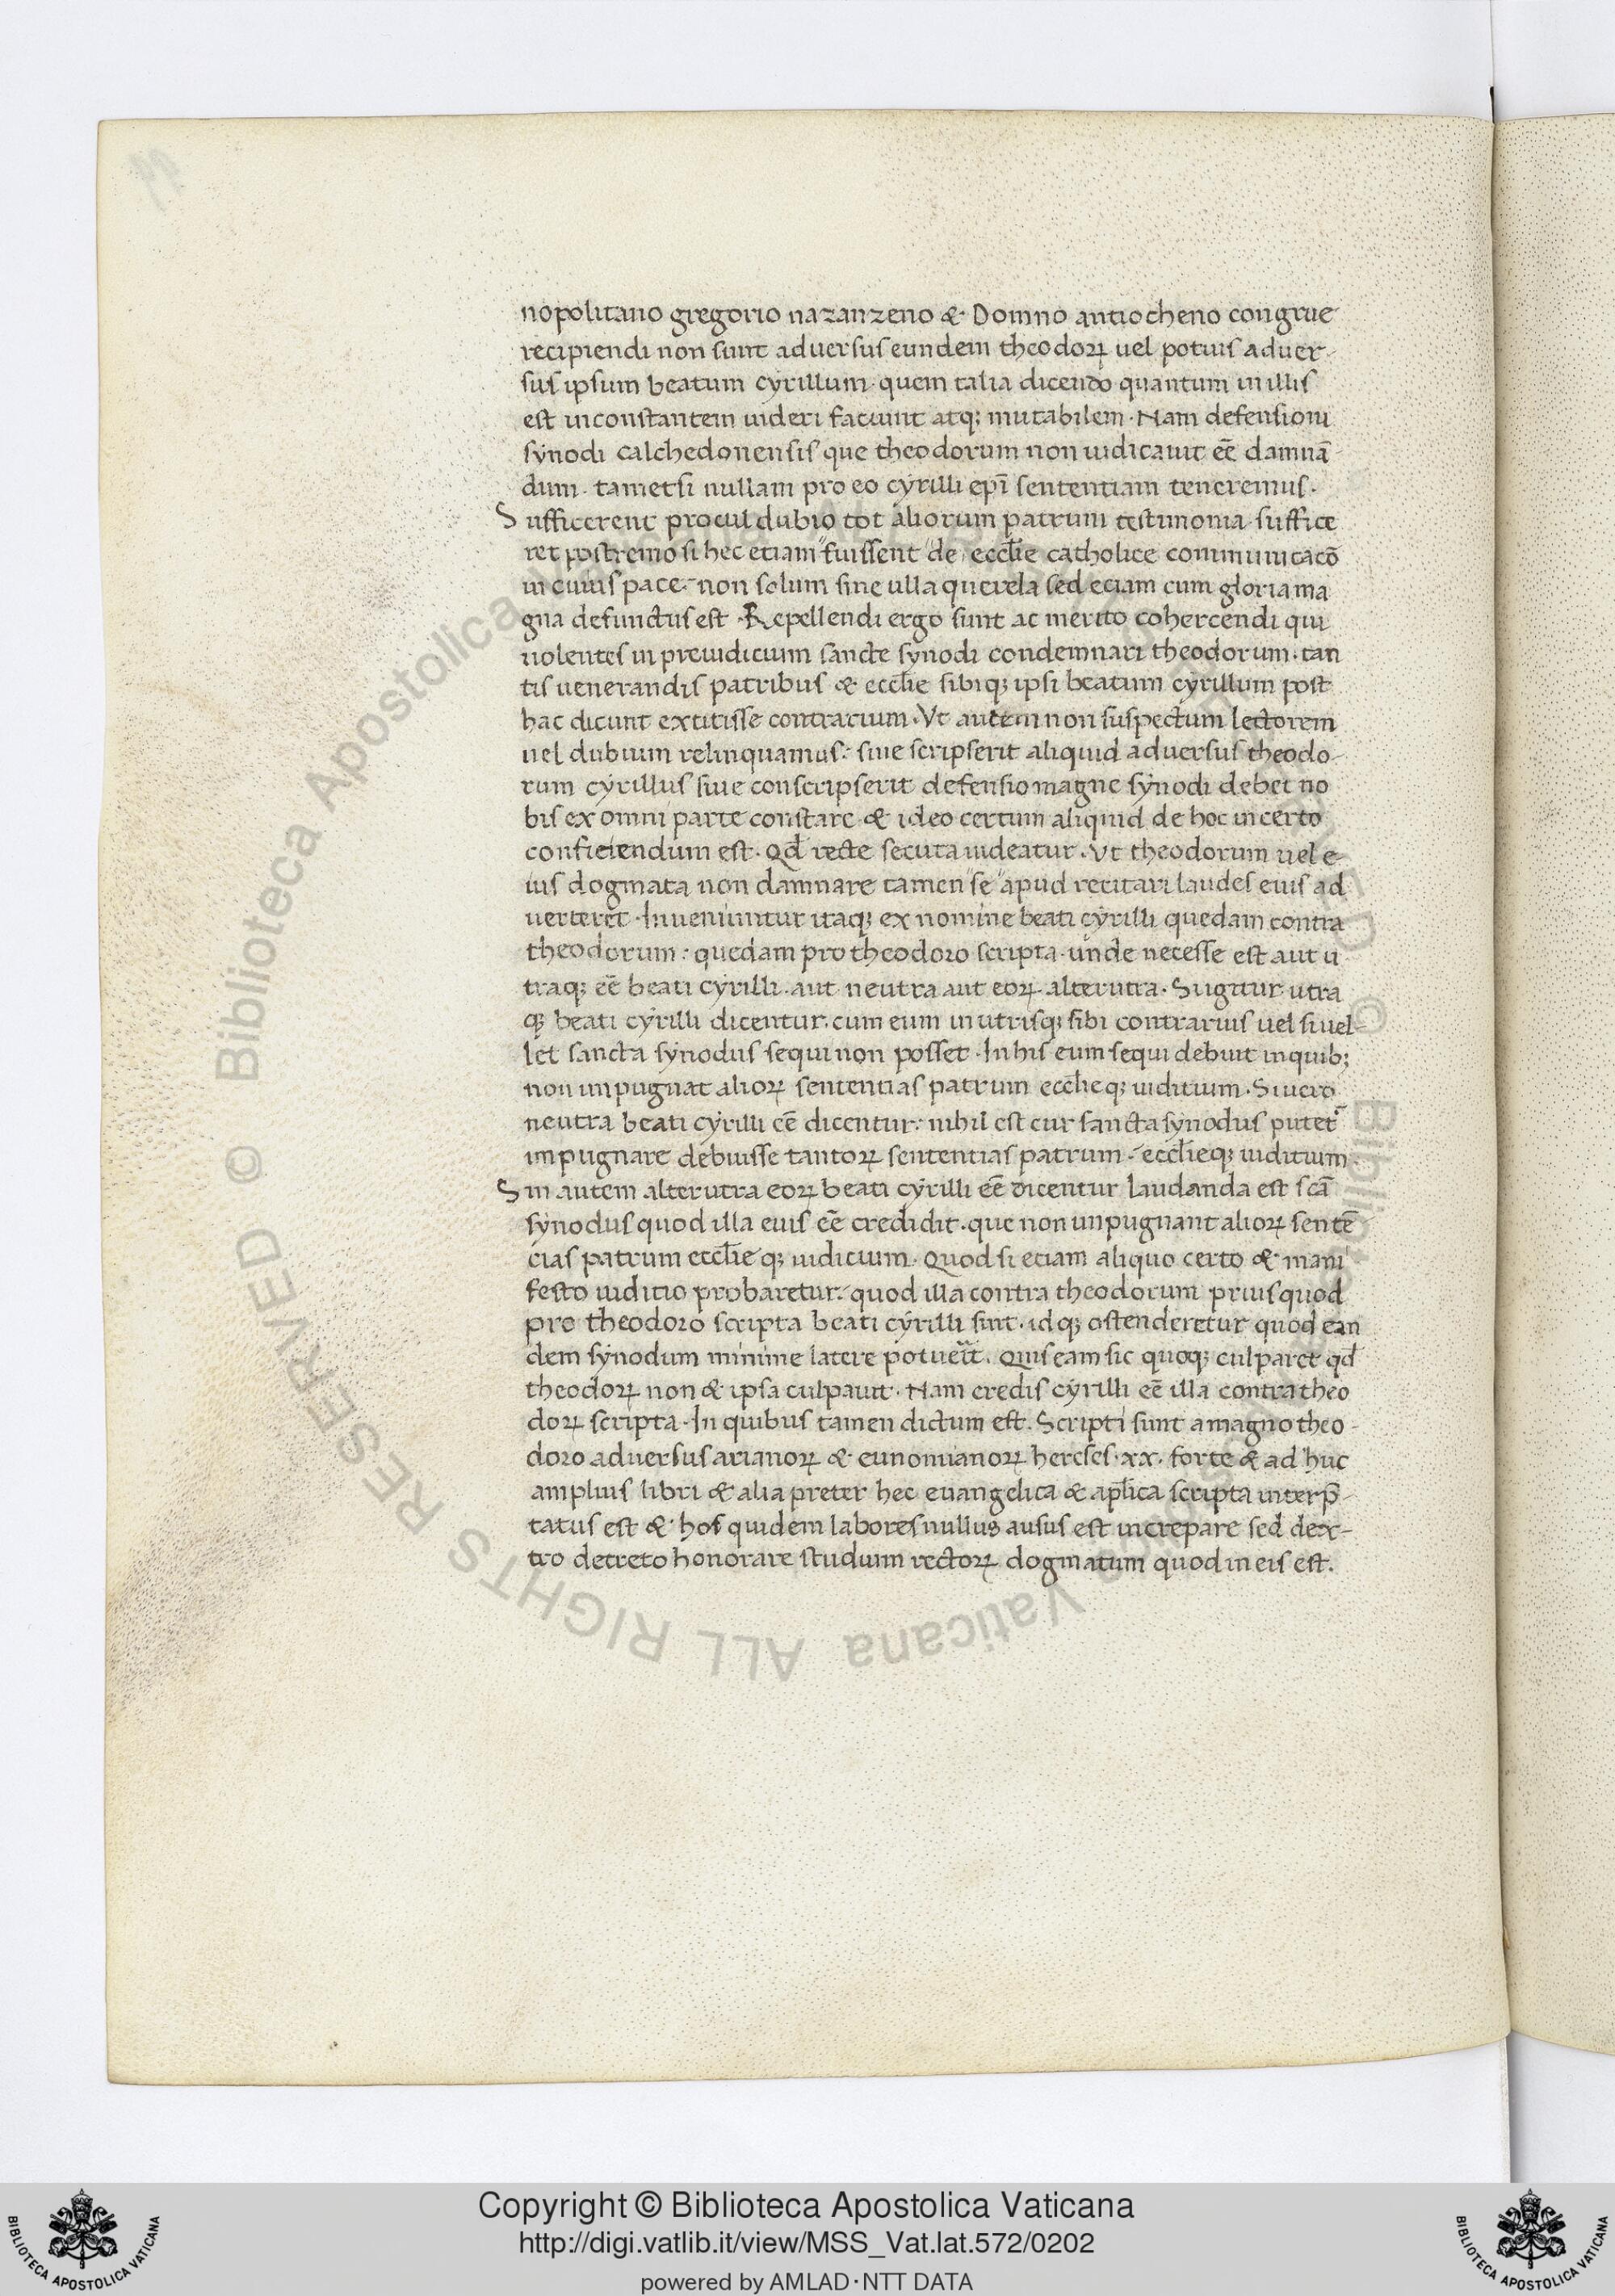 nopolitano gregorio nazanzeno & Domno antiocheno congrue
recipiendi non sunt adversus eundem theodoꝝ vel potius adver-
sus ipsum beatum cyrillum quem talia dicendo quantum in illis
est inconstantem videri faciunt atqꝫ mutabilem · Nam defensioni
synodi calchedonensis que theodorum non iudicavit eē damnā
dum · tametsi nullam pro eo cyrilli epī sententiam teneremus ·
Sufficerent procul dubio tot aliorum patrum testimonia suffice
ret postremo si hec etiam fuissent de eccłie catholice communicacō
in cuius pace · non solum sine ulla querela sed eciam cum gloria ma
gna defunctus est · Repellendi ergo sunt ac merito cohercendi qui
volentes in preiudicium sancte synodi condemnari theodorum · tan
tis venerandis patribus & eccłie sibiqꝫ ipsi beatum cyrillum post
hac dicunt extitisse contrarium · Vt autem non suspectum lectorem
vel dubium relinquamus : sive scripserit aliquid adversus theodo-
rum cyrillus sive conscripserit defensio magne synodi debet no
bis ex omni parte constare & ideo certum aliquid de hoc incerto
conficiendum est · Qđ recte secuta videatur · Vt theodorum vel e-
ius dogmata non damnare tamen se apud recitari laudes eius ad
verteret · Inveniuntur itaqꝫ ex nomine beati cyrilli quedam contra
theodorum : quedam pro theodoro scripta · unde necesse est aut u
traqꝫ eē beati cyrilli · aut neutra aut eoꝝ alterutra · Sugitur utra
qꝫ beati cyrilli dicentur · cum eum in utrisqꝫ sibi contrarius vel si vel-
let sancta synodus sequi non posset · In his eum sequi debuit in quibꝫ
non impugnat alioꝝ sententias patrum eccłieqꝫ iuditium · Si vero
neutra beati cyrilli eē dicentur : nihil est cur sancta synodus putet
impugnare debuisse tantoꝝ sententias patrum · eccłieqꝫ iuditium ·
Sin autem alterutra eoꝝ beati cyrilli eē dicentur laudanda est scā
synodus quod illa eius eē credidit · que non impugnant alioꝝ sentē
cias patrum eccłie qꝫ iudicium · Quod si eciam aliquo certo & mani
festo iuditio probaretur · quod illa contra theodorum prius quod
pro theodoro scripta beati cyrilli sint · idqꝫ ostenderetur quod ean
dem synodum minime latere potuerit · Quis eam sic quoqꝫ culparet qđ
theodoꝝ non & ipsa culpavit · Nam credis cyrilli eē illa contra theo
doꝝ scripta · In quibus tamen dictum est · Scripti sunt a magno theo-
doro adversus arianoꝝ & eunomianoꝝ hereses · xx · forte & ad huc
amplius libri & alia preter hec evangelica & apłica scripta interp̄-
tatus est & hos quidem labores nullus ausus est increpare sed dex-
tro decreto honorare studium rectoꝝ dogmatum quod in eis est.
© Biblioteca Apostolica Vaticana ALL RIGHTS RESERVED
Copyright © Biblioteca Apostolica Vaticana
http://digi.vatlib.it/view/MSS_Vat.lat.572/0202
powered by AMLAD·NTT DATA
BIBLIOTECA APOSTOLICA VATICANA
BIBLIOTECA APOSTOLICA VATICANA